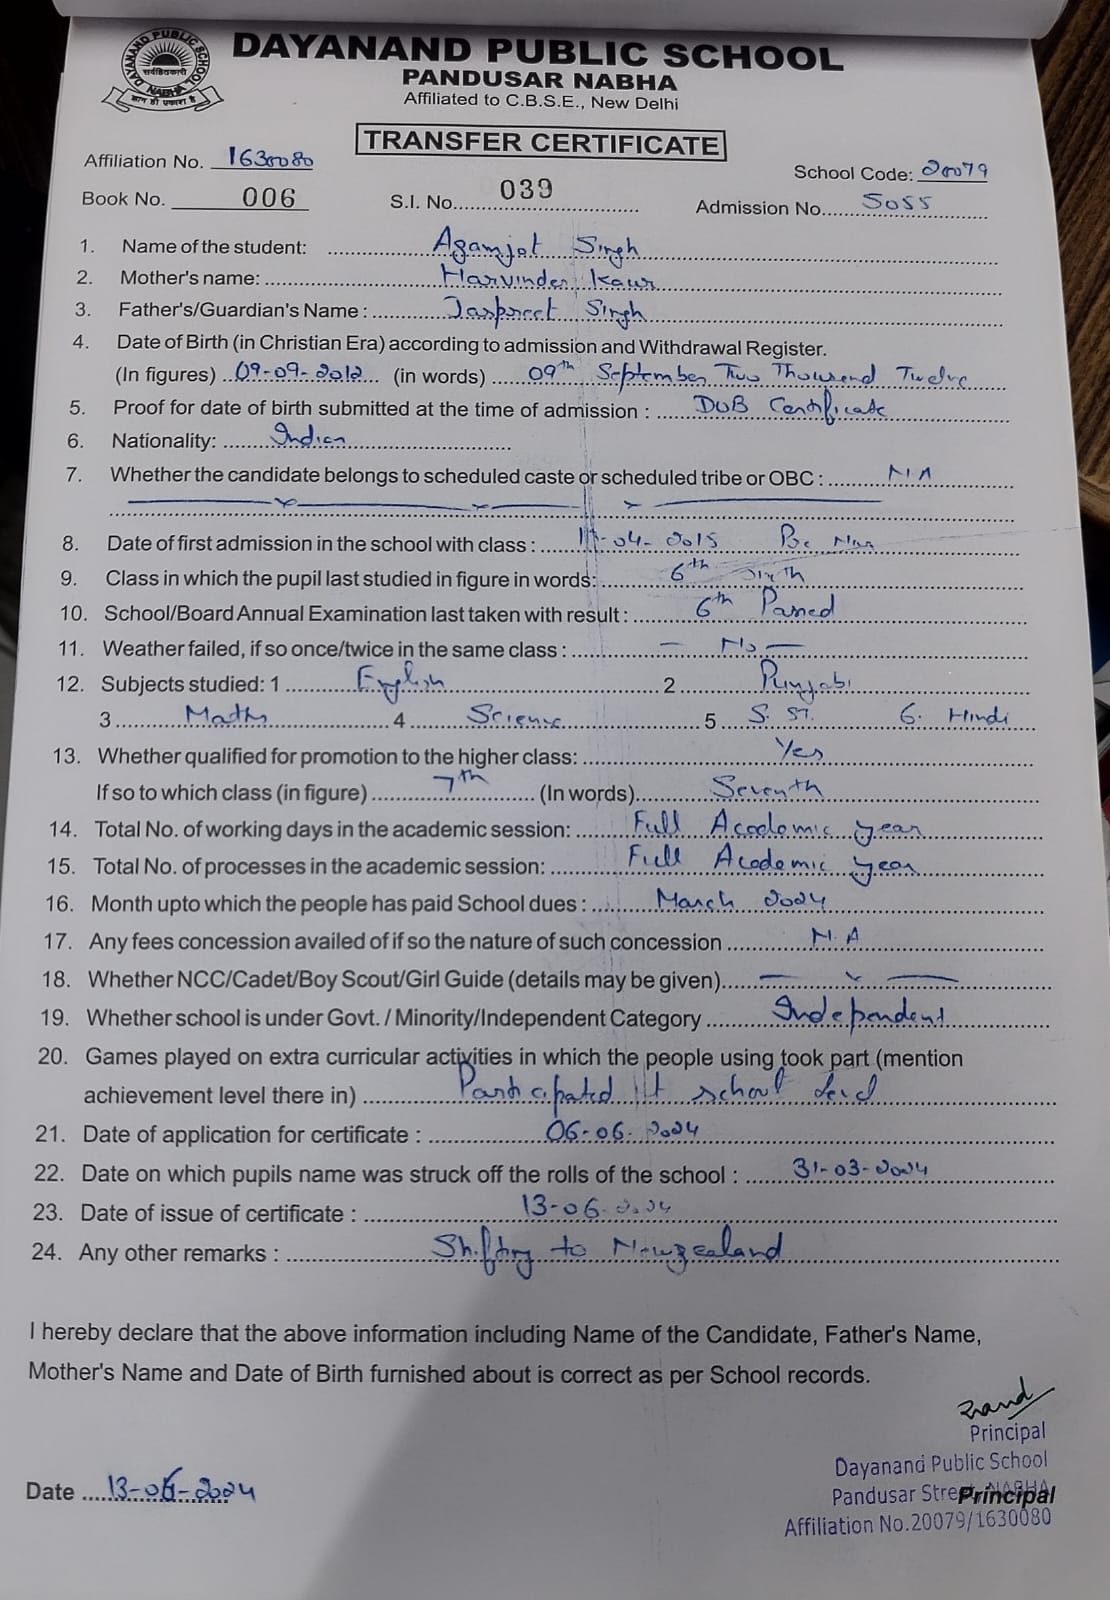 DAYANAND PUBLIC SCHOOL
PANDUSAR NABHA
Affiliated to C.B.S.E., New Delhi
DAYANAND PUBLIC SCHOOL
NABHA
ज्ञान ही प्रकाश है
TRANSFER CERTIFICATE
Affiliation No. 1630080
School Code: 20079
Book No. 006
S.I. No. 039
Admission No. 5055
1. Name of the student: Agamjot Singh
2. Mother's name: Harvinder Kaur
3. Father's/Guardian's Name : Jaspreet Singh
4. Date of Birth (in Christian Era) according to admission and Withdrawal Register.
(In figures) 09-09-2012 (in words) 09th September Two Thousand Twelve
5. Proof for date of birth submitted at the time of admission : DOB Certificate
6. Nationality: Indian
7. Whether the candidate belongs to scheduled caste or scheduled tribe or OBC : N.A
8. Date of first admission in the school with class : -04-2015 Pre Nur
9. Class in which the pupil last studied in figure in words: 6th Sixth
10. School/Board Annual Examination last taken with result : 6th Passed
11. Weather failed, if so once/twice in the same class : — No —
12. Subjects studied: 1 English 2 Punjabi
3 Maths 4 Science 5 S. ST. 6. Hindi
13. Whether qualified for promotion to the higher class: Yes
If so to which class (in figure) 7th (In words) Seventh
14. Total No. of working days in the academic session: Full Academic year
15. Total No. of processes in the academic session: Full Academic year
16. Month upto which the people has paid School dues : March 2024
17. Any fees concession availed of if so the nature of such concession N.A
18. Whether NCC/Cadet/Boy Scout/Girl Guide (details may be given)
19. Whether school is under Govt. / Minority/Independent Category Independent
20. Games played on extra curricular activities in which the people using took part (mention
achievement level there in) Participated school level
21. Date of application for certificate : 06-06-2024
22. Date on which pupils name was struck off the rolls of the school : 31-03-2024
23. Date of issue of certificate : 13-06-2024
24. Any other remarks : Shifting to Newzealand
I hereby declare that the above information including Name of the Candidate, Father's Name,
Mother's Name and Date of Birth furnished about is correct as per School records.
Principal
Dayanand Public School
Date 13-06-2024
Pandusar Street, NABHA
Principal
Affiliation No.20079/1630080